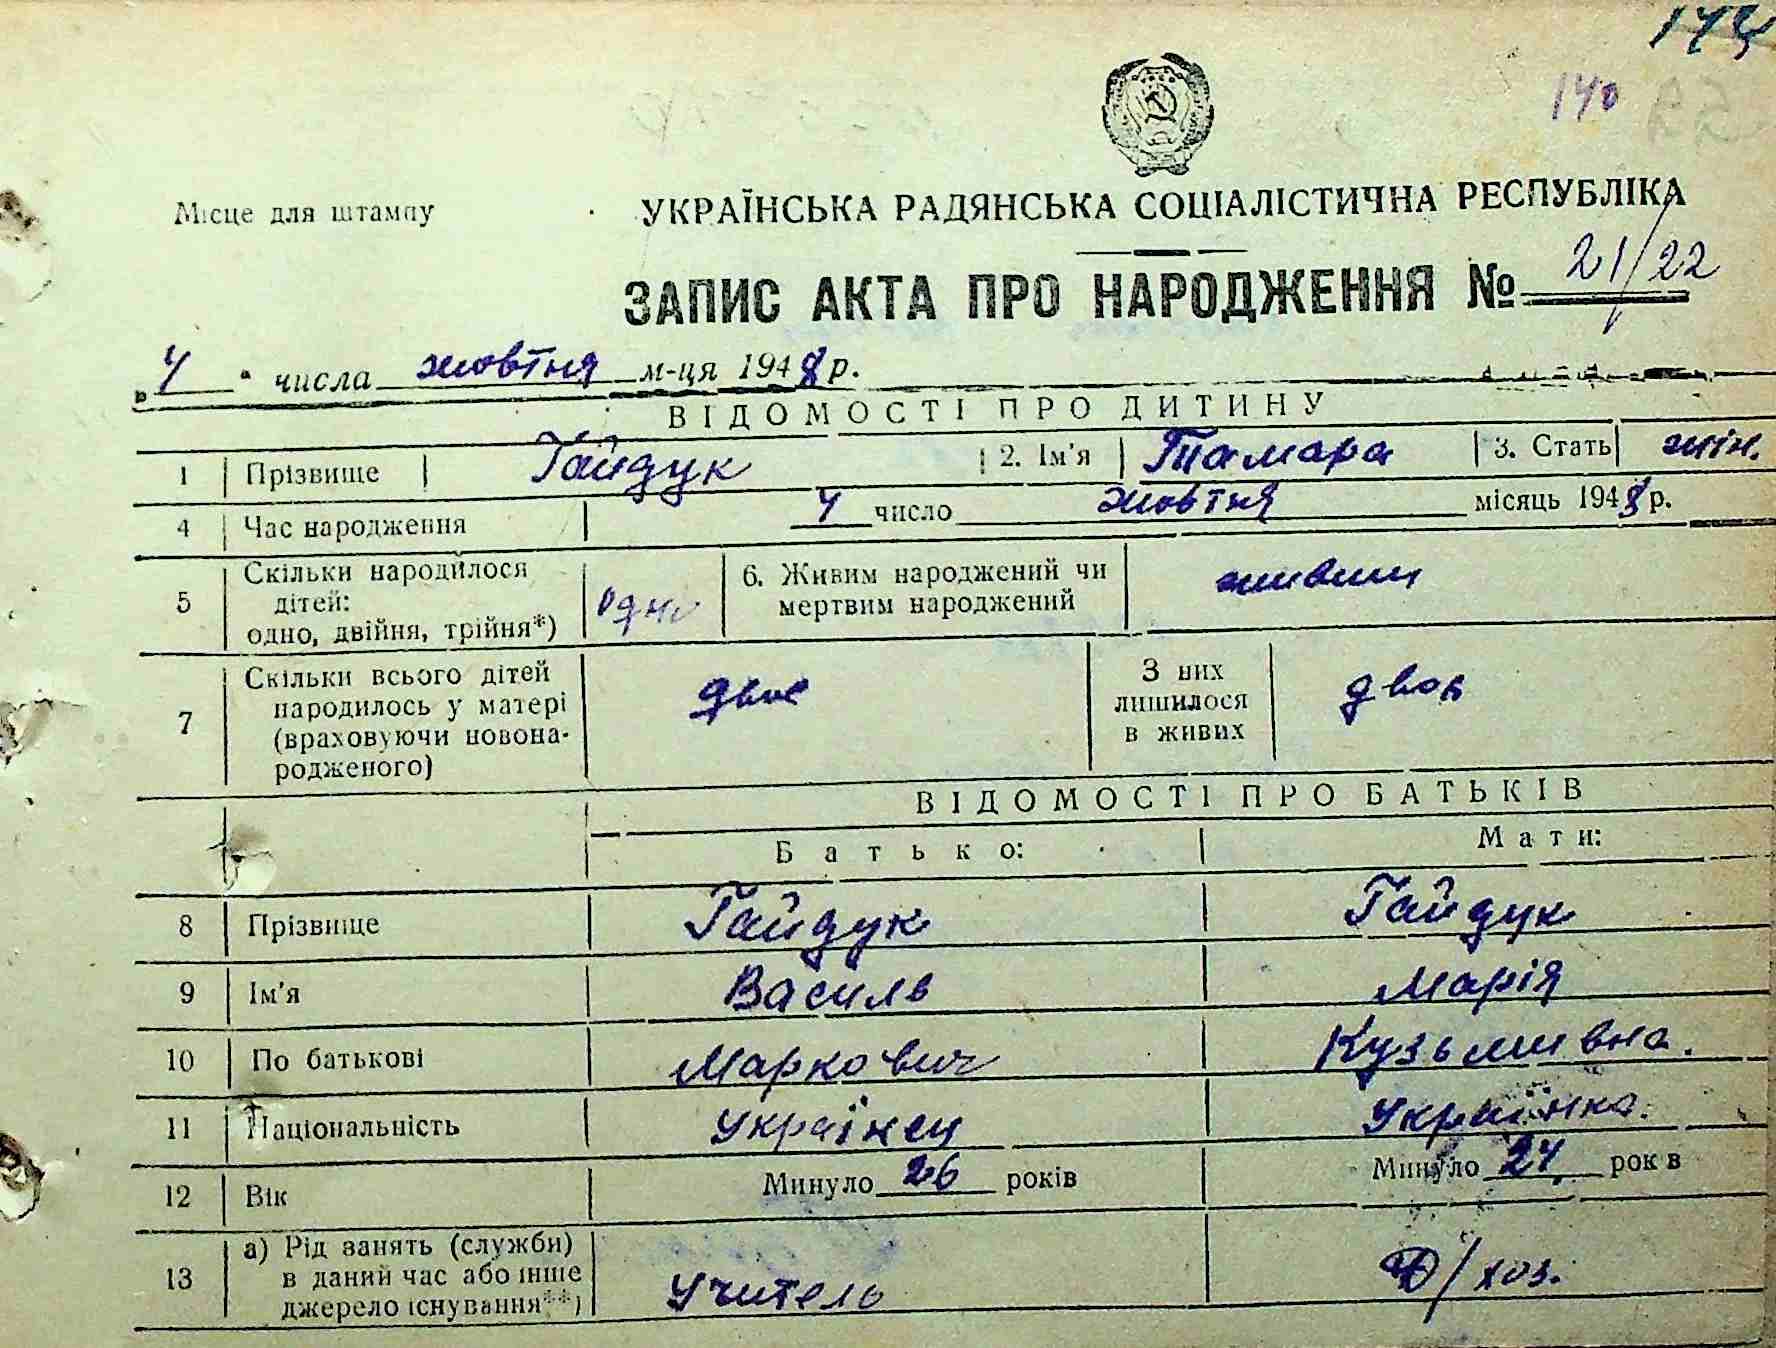 140
Місце для штампу
УКРАЇНСЬКА РАДЯНСЬКА СОЦІАЛІСТИЧНА РЕСПУБЛІКА
ЗАПИС АКТА ПРО НАРОДЖЕННЯ № 21/22
„4" числа жовтня м-ця 1948 р.
ВІДОМОСТІ ПРО ДИТИНУ
1 Прізвище Гайдук 2. Ім'я Тамара 3. Стать жін.
4 Час народження 4 число жовтня місяць 1948 р.
5 Скільки народилося дітей: одно, двійня, трійня*) одно 6. Живим народжений чи мертвим народжений живим
7 Скільки всього дітей народилось у матері (враховуючи новонародженого) двоє З них лишилося в живих двоє
ВІДОМОСТІ ПРО БАТЬКІВ
Батько: Мати:
8 Прізвище Гайдук Гайдук
9 Ім'я Василь Марія
10 По батькові Маркович Кузьмивна.
11 Національність Українец Українка.
12 Вік Минуло 26 років Минуло 24 рок в
13 а) Рід занять (служби) в даний час або інше джерело існування**) Учитель Д/хоз.